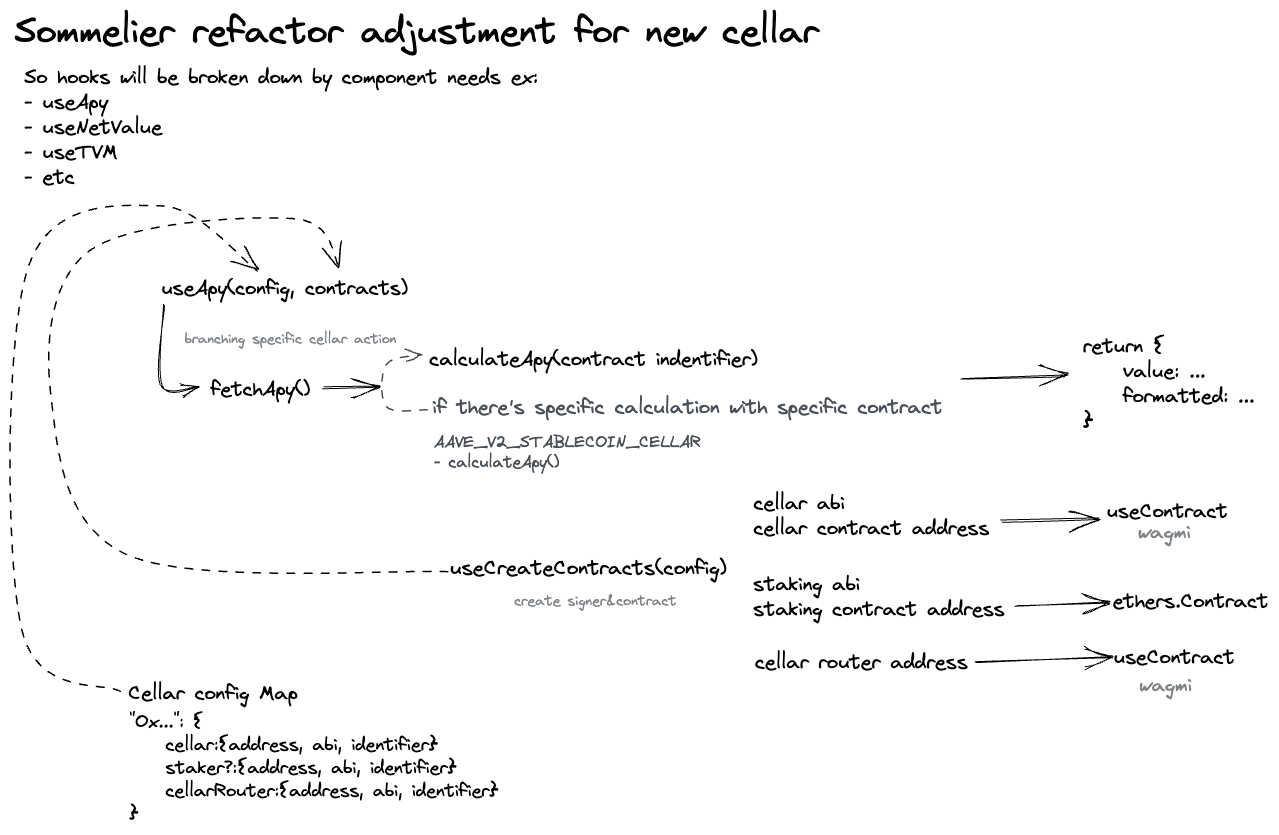 Sommelier refactor adjustment for new cellar
So hooks will be broken down by component needs ex:
- useApy
- useNetValue
- useTVM
- etc
useApy(config, contracts)
branching specific cellar action
calculateApy(contract indentifier)
fetchApy()
if there's specific calculation with specific contract
AAVE_V2_STABLECOIN_CELLAR
- calculateApy()
return {
value: ...
formatted: ...
}
cellar abi
cellar contract address
useContract
wagmi
useCreateContracts(config)
create signer&contract
staking abi
staking contract address
ethers.Contract
cellar router address
useContract
wagmi
Cellar config Map
"0x...": {
cellar:{address, abi, identifier}
staker?:{address, abi, identifier}
cellarRouter:{address, abi, identifier}
}